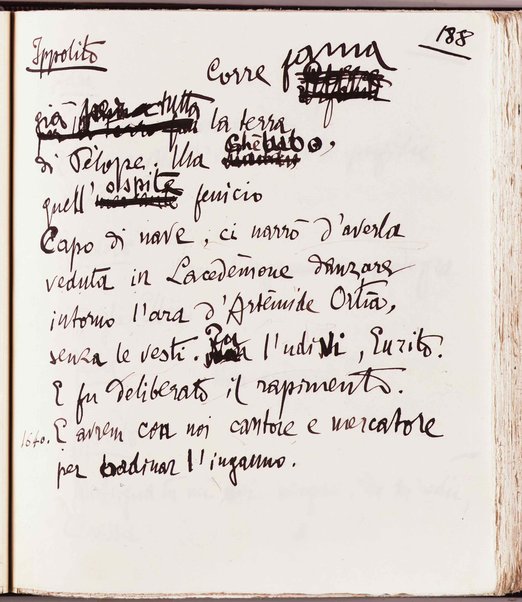 188
Ippolito
Corre fama
già per tutta la terra
di Pèlope. Ma Ghêlbo,
quell'ospite fenicio
Capo di nave, ci narrò d'averla
veduta in Lacedèmone danzare
intorno l'ara d'Artèmide Ortia,
senza le vesti. l'udivi, Eurito.
E fu deliberato il rapimento.
1640. E avrem con noi cantore e mercatore
per ordinar l'inganno.